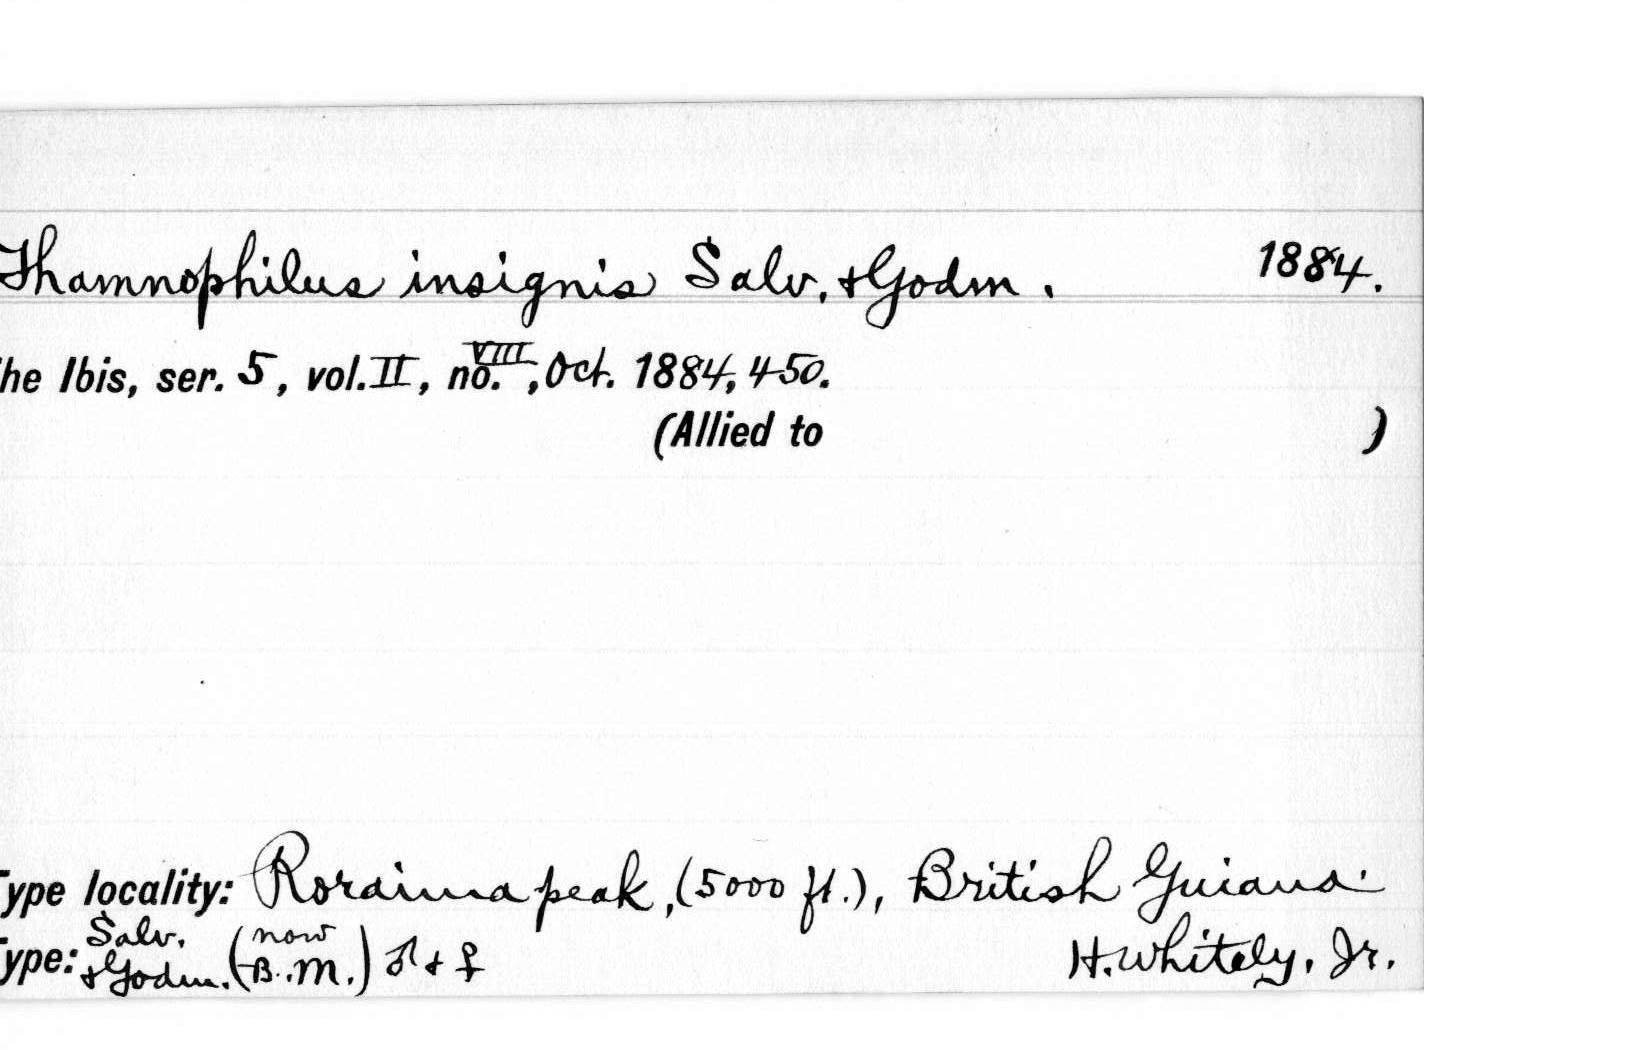 Thamnophilus insignis Salv. & Godm. 1884.
he Ibis, ser. 5, vol. II, no. VIII, Oct. 1884, 450.
(Allied to )
Type locality: Roraima peak, (5000 ft.), British Guiana.
Type: Salv. & Godm. (now B.M.) ♂ & ♀ H. Whitely, Jr.